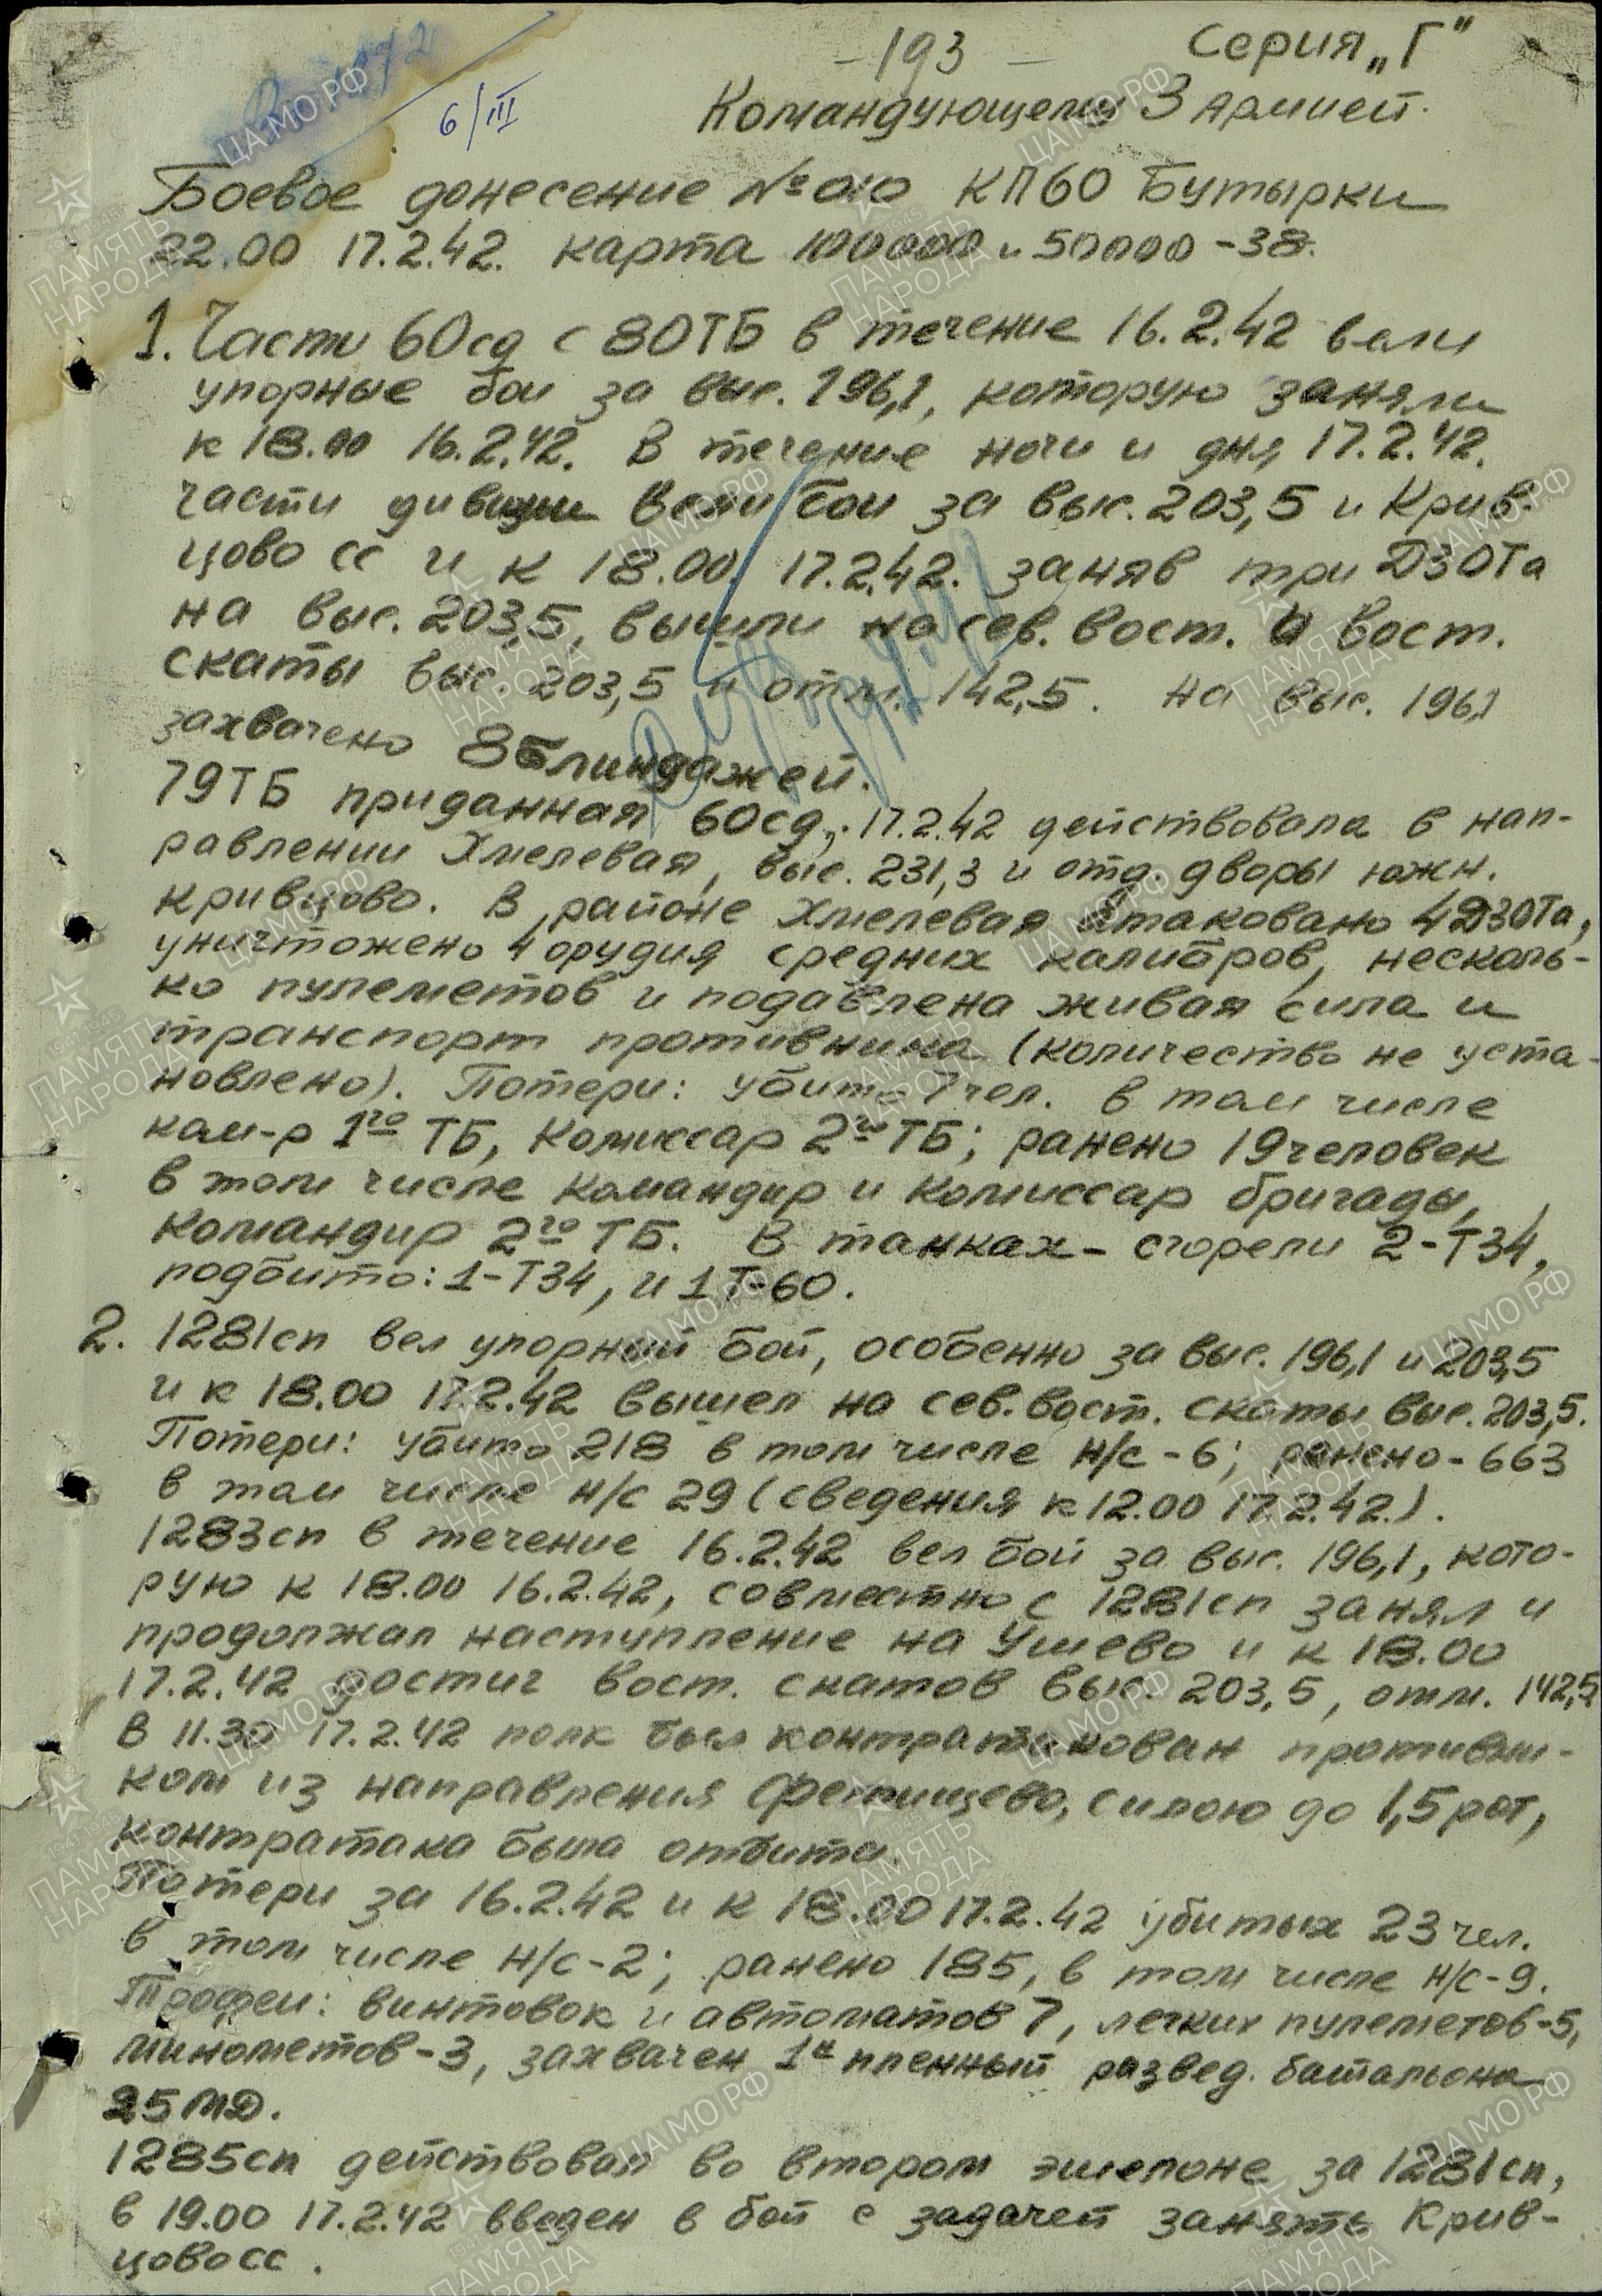 - 193 -
Серия „Г"
6/III
Командующему 3 Армией.
Боевое донесение № 010 КП 60 Бутырки
22.00 17.2.42. карта 100000 и 50000 - 38.
1. Части 60сд с 80ТБ в течение 16.2.42 вели
упорные бои за выс. 196,1, которую заняли
к 18.00 16.2.42. В течение ночи и дня 17.2.42.
части дивизии вели бои за выс. 203,5 и Крив-
цово сс и к 18.00 17.2.42. заняв три ДЗОТа
на выс. 203,5, вышли на сев. вост. и вост.
скаты выс. 203,5 и отм. 142,5. На выс. 196,1
захвачено 8 блиндажей.
79ТБ приданная 60сд, 17.2.42 действовала в нап-
равлении Хмелевая, выс. 231,3 и отд. дворы южн.
Кривцово. В районе Хмелевая атаковано 4 ДЗОТа,
уничтожено 4 орудия средних калибров, несколь-
ко пулеметов и подавлена живая сила и
транспорт противника (количество не уста-
новлено). Потери: убито 7 чел. в том числе
ком-р 1го ТБ, Комиссар 2го ТБ; ранено 19 человек
в том числе командир и комиссар бригады,
Командир 2го ТБ. В танках - сгорели 2-Т34,
подбито: 1-Т34, и 1Т-60.
2. 1281сп вел упорный бой, особенно за выс. 196,1 и 203,5
и к 18.00 17.2.42 вышел на сев. вост. скаты выс. 203,5.
Потери: убито 218 в том числе н/с - 6; ранено - 663
в том числе н/с 29 (сведения к 12.00 17.2.42.).
1283сп в течение 16.2.42 вел бой за выс. 196,1, кото-
рую к 18.00 16.2.42, совместно с 1281сп занял и
продолжал наступление на Ушево и к 18.00
17.2.42 достиг вост. скатов выс. 203,5, отм. 142,5
В 11.30 17.2.42 полк был контратакован противни-
ком из направления Фетищево, силою до 1,5 рот,
контратака была отбита.
Потери за 16.2.42 и к 18.00 17.2.42 убитых 23 чел.
в том числе н/с - 2; ранено 185, в том числе н/с - 9.
Трофеи: винтовок и автоматов 7, легких пулеметов - 5,
минометов - 3, захвачен 1н пленный развед. батальона
25 МД.
1285сп действовал во втором эшелоне за 1281сп,
в 19.00 17.2.42 введен в бой с задачей занять Крив-
цово сс.
ЦАМО РФ
ПАМЯТЬ
НАРОДА